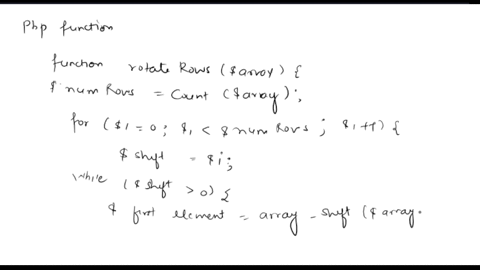 Php function
function rotate Rows ($array) {
$ num Rows = Count ($array);
for ($i=0; $i < $num Rows ; $i++) {
$ shift = $i;
while ($ shift > 0) {
$ first element = array - shift ($ array.